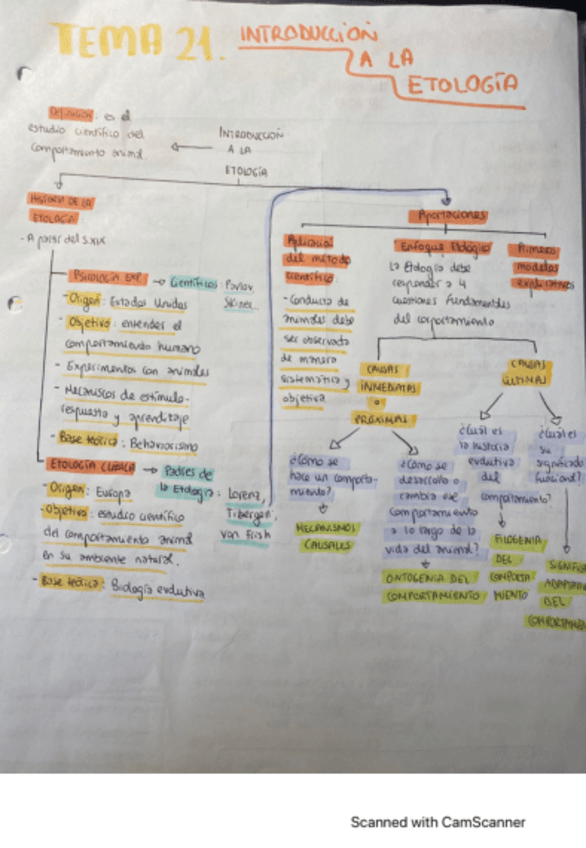 TEMA 21. INTRODUCCIÓN
A LA
ETOLOGÍA
Definición: es el
estudio científico del
comportamiento animal.
INTRODUCCIÓN
A LA
ETOLOGÍA
HISTORIA DE LA
ETOLOGÍA
- A partir del S.XIX
PSICOLOGÍA EXP. → Científicos: Pavlov,
Skiner...
- Origen: Estados Unidos
- Objetivo: entender el
comportamiento humano
- Experimentos con animales
- Mecanismos de estímulo-
respuesta y aprendizaje
- Base teórica: Behaviorismo
ETOLOGÍA CLÁSICA → Padres de
la Etología: Lorenz,
Tibergen,
Von Frish
- Origen: Europa
- Objetivo: estudio científico
del comportamiento animal
en su ambiente natural.
- Base teórica: Biología evolutiva
Aportaciones
Aplicación
del método
científico:
- Conducta de
animales debe
ser observada
de manera
sistemática y
objetiva
Enfoque Etológico
La Etología debe
responder a 4
cuestiones fundamentales
del comportamiento
Primeros
modelos
explicativos
CAUSAS
INMEDIATAS
o
PRÓXIMAS
CAUSAS
ÚLTIMAS
¿Cómo se
hace un comporta-
miento?
MECANISMOS
CAUSALES
¿Cómo se
desarrolla o
cambia ese
comportamiento
a lo largo de la
vida del animal?
ONTOGENIA DEL
COMPORTAMIENTO
¿Cuál es
la historia
evolutiva
del
comportamiento?
FILOGENIA
DEL
COMPORTA
MIENTO
¿Cuál es
su
significado
funcional?
DEL
Scanned with CamScanner